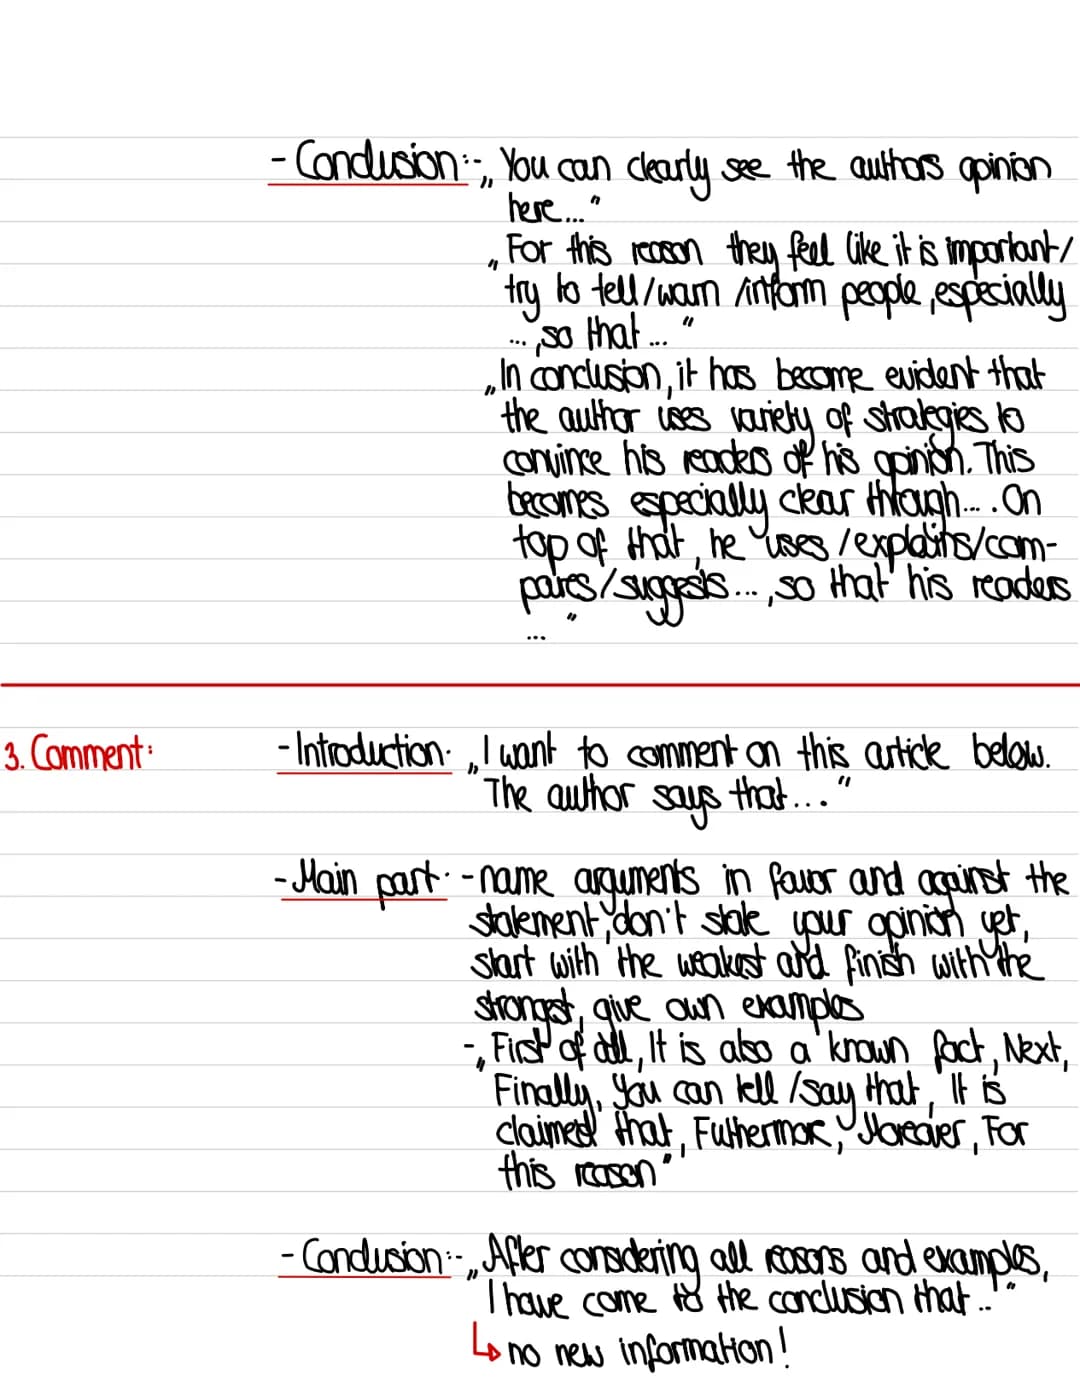 - Conclusion:- „You can clearly see the authors opinion
here..."
„For this reason they feel like it is important/
try to tell/warn/inform people, especially
..., so that..."
„In conclusion, it has become evident that
the author uses variety of strategies to
convince his readers of his opinion. This
becomes especially clear through.... On
top of that, he uses/explains/com-
pares/suggests..., so that his readers
..."
3. Comment: - Introduction: „I want to comment on this article below.
The author says that..."
- Main part: - name arguments in favor and against the
statement, don't state your opinion yet,
start with the weakest and finish with the
strongest, give own examples
- „First of all, It is also a known fact, Next,
Finally, You can tell/say that, It is
claimed that, Futhermor, Moreover, For
this reason"
- Conclusion:- „After considering all reasons and examples,
I have come to the conclusion that.."
↳ no new information!